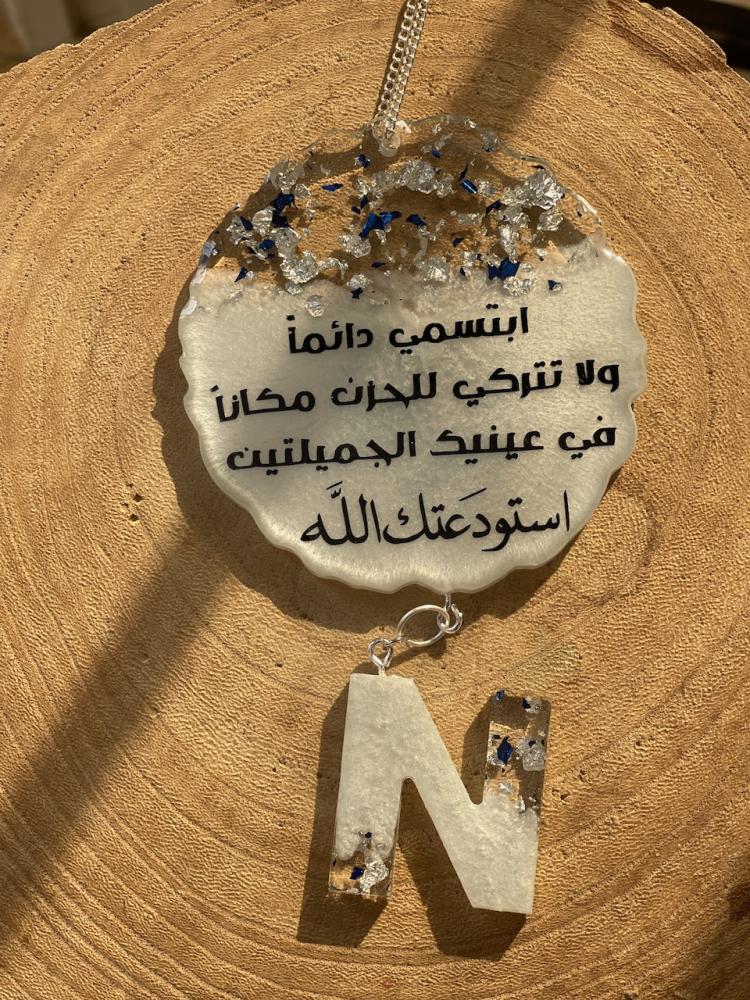 ابتسمي دائماً
ولا تتركي للحزن مكاناً
في عينيك الجميلتين
استودَعتك اللَّه
N